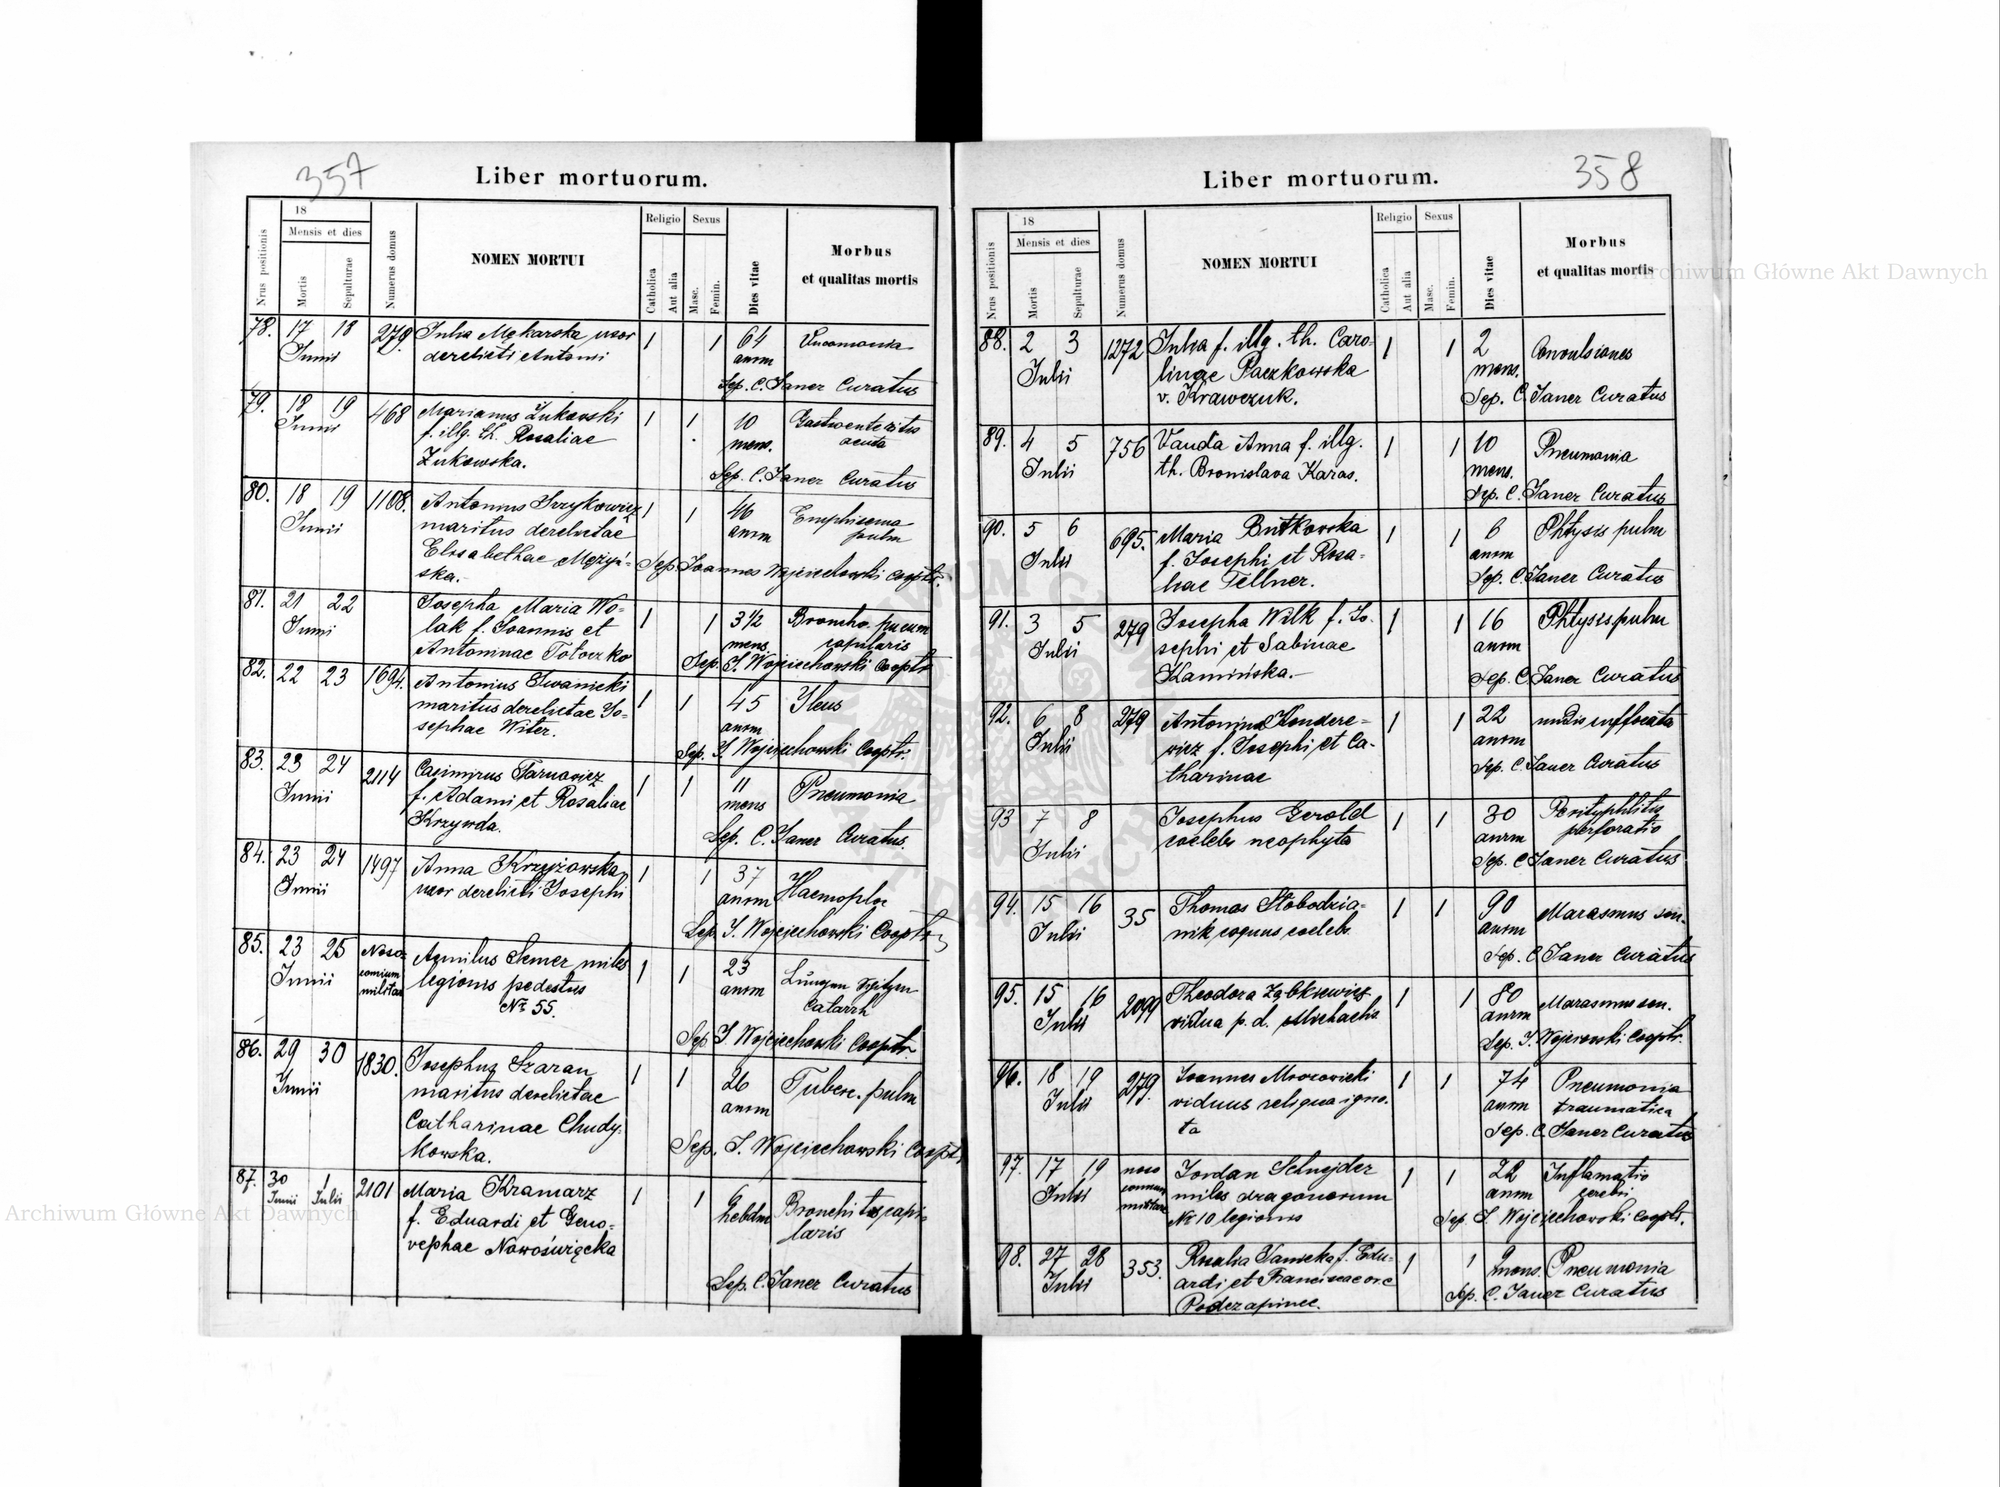 357
Liber mortuorum.
Nrus positionis
18
Mensis et dies
Mortis
Sepulturae
Numerus domus
NOMEN MORTUI
Religio
Catholica
Aut alia
Sexus
Masc.
Femin.
Dies vitae
Morbus
et qualitas mortis
78. 17 18 279. Julia Mękarska uxor 1 1 64
Junii derelicti Antoni annm
Sep. C. Janer Curatus
79. 18 19 468 Marianus Żukowski 1 1 10 Gastroenteritis
Junii f. illg. th. Rosaliae mens. acuta
Żukowska.
Sep. C. Janer Curatus
80. 18 19 1108. Antonius 1 1 46 Emphisema
Junii maritus derelictae annm pulm
Elisabethae Mężyń-
ska.- Sep. Joannes Wojciechowski Cooptr.
81. 21 22 Josepha Maria Wo- 1 1 3 1/2 Broncho pneum
Junii lak f. Joannis et mens.
Antoninae Tołoczko Sep. J. Wojciechowski Cooptr
82. 22 23 1694. Antonius Iwanicki 1 1 45 Yleus
maritus derelictae Jo- annm
sephae Witer. Sep. J. Wojciechowski Cooptr.
83. 23 24 2114 Casimirus Tarnowicz 1 1 11 Pneumonia
Junii f. Adami et Rosaliae mens
Krzywda. Sep. C. Janer Curatus.
84. 23 24 1497 Anna Krzyżowska 1 1 37
Junii uxor derelicti Josephi annm Haemoptoe
Sep. J. Wojciechowski Cooptr
85. 23 25 Noso- miles 1 1 23
Junii comium legionis pedestris annm Catarrh
militare Nr 55.
Sep J Wojciechowski Cooptr
86. 29 30 1830. Josephus Szaran 1 1 26 Tuberc. pulm
Junii maritus derelictae annm
Catharinae Chudy-
kowska. Sep. J. Wojciechowski Cooptr
87. 30 1 2101 Maria Kramarz 1 1
Junii Julii f. Eduardi et Geno- hebdm Bronchitis capi-
vephae Nowoświęcka laris
Sep. C. Janer Curatus
358
Liber mortuorum.
Nrus positionis
18
Mensis et dies
Mortis
Sepulturae
Numerus domus
NOMEN MORTUI
Religio
Catholica
Aut alia
Sexus
Masc.
Femin.
Dies vitae
Morbus
et qualitas mortis
88. 2 3 1272 Julia f. illg. th. Caro- 1 1 2 Convulsiones
Julii linae Paczkowska mens.
v. Krawczuk. Sep. C. Janer Curatus
89. 4 5 756 Vanda Anna f. illg. 1 1 10 Pneumonia
Julii th. Bronislava Karas. mens.
Sep. C. Janer Curatus
90. 5 6 695. Maria Butkowska 1 1 6 Phtysis pulm
Julii f. Josephi et Rosa- annm
liae Tellner. Sep. C. Janer Curatus
91. 3 5 279 Josepha Wilk f. Jo- 1 1 16 Phtysis pulm
Julii sephi et Sabinae annm
Kamińska.- Sep. C. Janer Curatus
92. 6 8 279 Antonina Kondere- 1 1 22 undis suffocata
Julii wicz f. Josephi et Ca- annm
tharinae Sep. C. Janer Curatus
93 7 8 Josephus Gerold 1 1 30 Perityphlitis
Julii coelebs neophyta annm perforatio
Sep. C Janer Curatus
94. 15 16 35 Thomas Słobodzia- 1 1 90 Marasmus sen.
Julii nik coquus coelebs annm
Sep. C. Janer Curatus
95. 15 16 2099 Theodora Ząbkiewicz 1 1 80 Marasmus sen.
Julii vidua p. d. Michaelis annm
Sep. J. Cooptr.
96. 18 19 279. Joannes Mrozowicki 1 1 74 Pneumonia
Julii viduus reliqua igno- annm traumatica
ta Sep. C. Janer Curatus
97. 17 19 noso Jordan Schnejder 1 1 22 Inflamatio
Julii comium miles dragonorum annm cerebri
militare Nr 10 legionis Sep. J. Wojciechowski Cooptr.
98. 27 28 353. Rosalia f. Edu- 1 1 2 Pneumonia
Julii ardi et Franciscae mens.
Sep. C. Janer Curatus
Archiwum Główne Akt Dawnych
Archiwum Główne Akt Dawnych